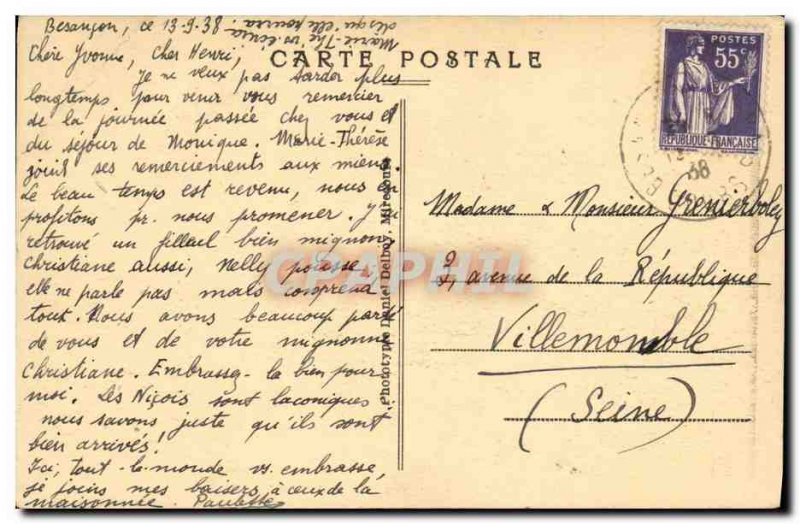 Besançon, ce 13-9-38
Marie-Thé vs écrira
dès qu'elle pourra.
CARTE POSTALE
Chère Yvonne, cher Henri,
Je ne veux pas tarder plus
longtemps pour venir vous remercier
de la journée passée chez vous et
du séjour de Monique. Marie-Thérèse
joint ses remerciements aux miens.
Le beau temps est revenu, nous en
profitons pr. nous promener. J'ai
retrouvé un filleul bien mignon,
Christiane aussi, Nelly pousse,
elle ne parle pas mais comprend
tout. Nous avons beaucoup parlé
de vous et de votre mignonne
Christiane. Embrassez-la bien pour
moi. Les Niçois sont laconiques :
nous savons juste qu'ils sont
bien arrivés !
Ici, tout-le-monde vs. embrasse,
je joins mes baisers à ceux de la
maisonnée. Paulette
Phototypie Daniel Delboy, Mirecourt
POSTES
55c
REPUBLIQUE FRANÇAISE
13
38
Madame & Monsieur Grenierboley
2, avenue de la République
Villemomble
(Seine)
CPAPHIL